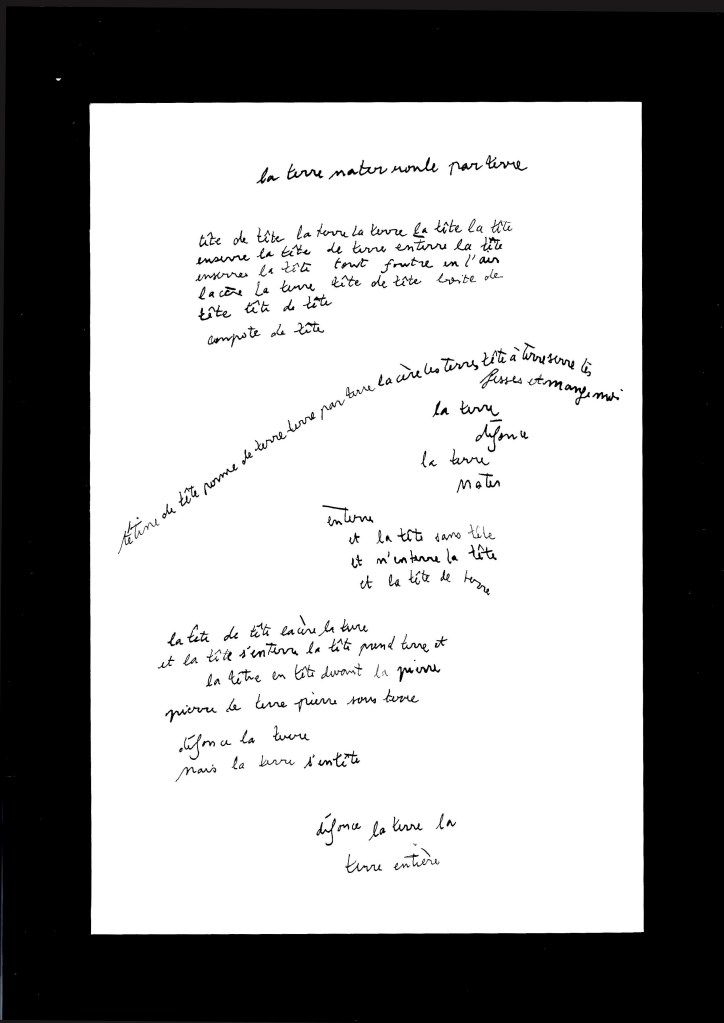 la terre mater roule par terre
tête de tête la terre la terre la tête la tête
enserre la tête de terre enterre la tête
enserres la tête tout foutre en l'air
lacère la terre tête de tête boite de
tête tête de tête
compote de tête
tétine de tête pomme de terre terre par terre lacère les terres tête à terre serre tes
fesses et mange moi
la terre
défonce
la terre
mater
enterre
et la tête sans tête
et n'enterre la tête
et la tête de terre
la tête de tête lacère la terre
et la tête s'enterre la tête prend terre et
la tête en tête devant la pierre
pierre de terre pierre sous terre
défonce la terre
mais la terre s'entête
défonce la terre la
terre entière